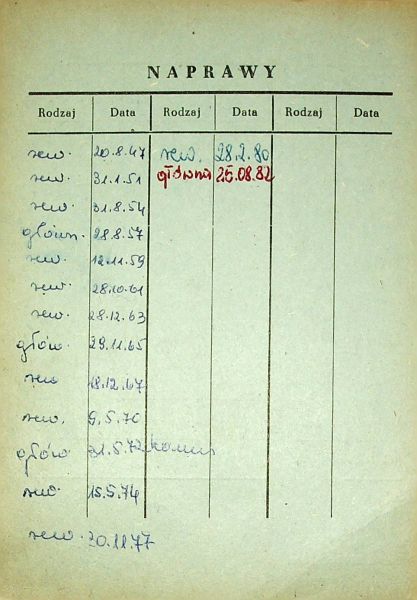 NAPRAWY
Rodzaj Data Rodzaj Data Rodzaj Data
rew. 20.8.47 rew. 28.2.80
rew. 31.1.51 główna 25.08.82
rew. 31.8.54
główn. 28.8.57
rew. 12.11.59
rew. 28.10.61
rew. 28.12.63
głów. 29.11.65
rew 18.12.67
rew. 9.5.70
głów 31.5.72
rew. 15.5.74
rew. 30.11.77